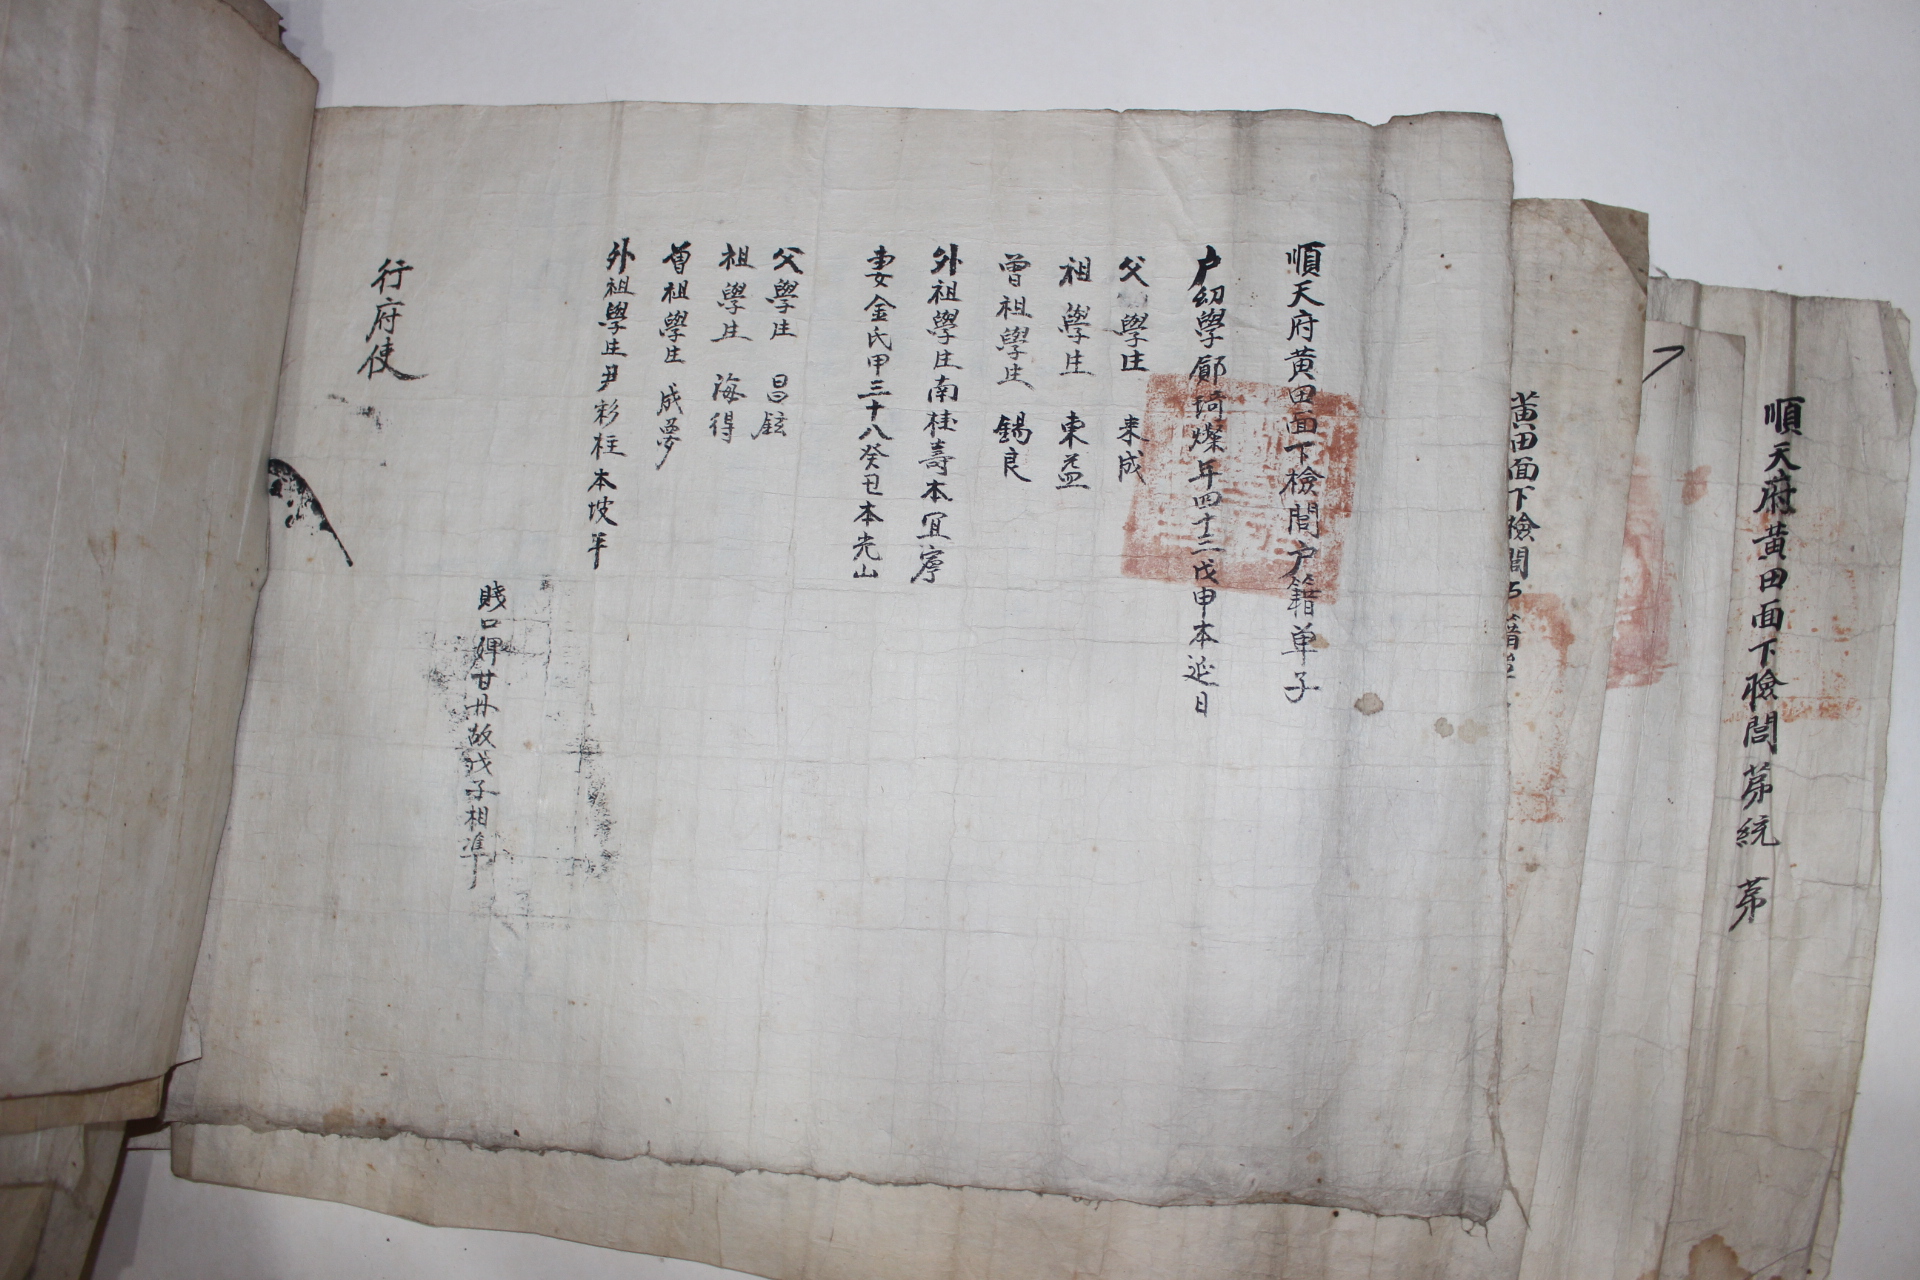 順天府黃田面下檢閭第統 第
黃田面下檢閭戶籍單
順天府黃田面下檢閭户籍单子
户幼學鄭琦燦年四十二戊申本延日
父學生 来成
祖學生 東益
曾祖學生 錫良
外祖學生南桂壽本宜寧
妻金氏甲三十八癸丑本光山
父學生 昌鉉
祖學生 海得
曾祖學生 成夢
外祖學生尹彩柱本坡平
賤口婢甘丹故戊子相準
行府使